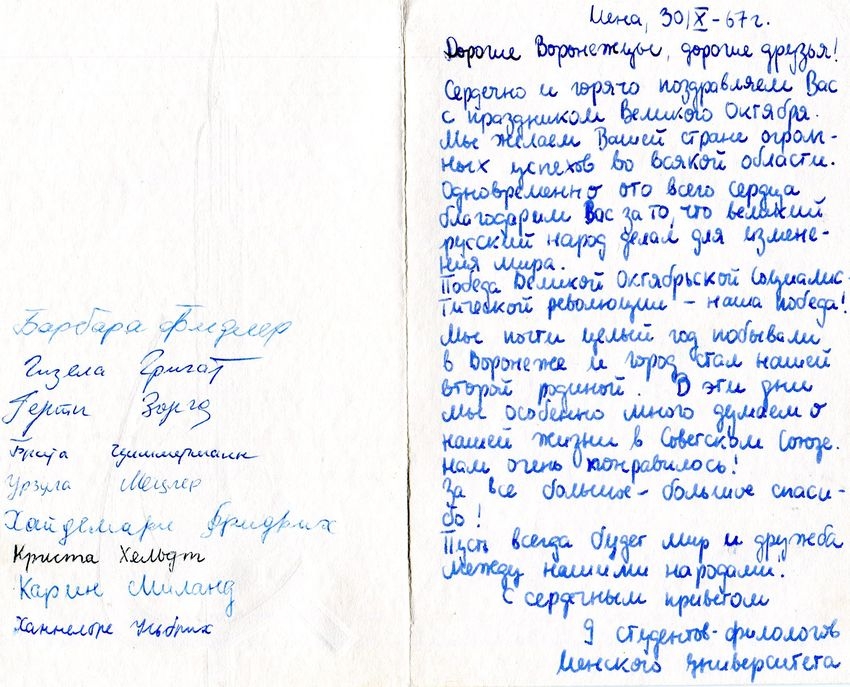 Барбара Фидлер
Гизела Григат
Герти Зорга
Грита Циммерманн
Урзула Мецлер
Хайдемари Фридрих
Криста Хельдт
Карин Миланд
Ханнелоре Ульбрих
Иена, 30/X-67г.
Дорогие Воронежцы, дорогие друзья!
Сердечно и горячо поздравляем Вас
с праздником Великого Октября.
Мы желаем Вашей стране огром-
ных успехов во всякой области.
Одновременно ото всего сердца
благодарим Вас за то, что великий
русский народ делал для измене-
ния мира.
Победа Великой Октябрьской Социалис-
тической революции – наша победа!
Мы почти целый год побывали
в Воронеже и город стал нашей
второй родиной. В эти дни
мы особенно много думаем о
нашей жизни в Советском Союзе.
Нам очень понравилось!
За все большое-большое спаси-
бо!
Пусть всегда будет мир и дружба
между нашими народами!
С сердечным приветом
9 студентов-филологов
Иенского университета